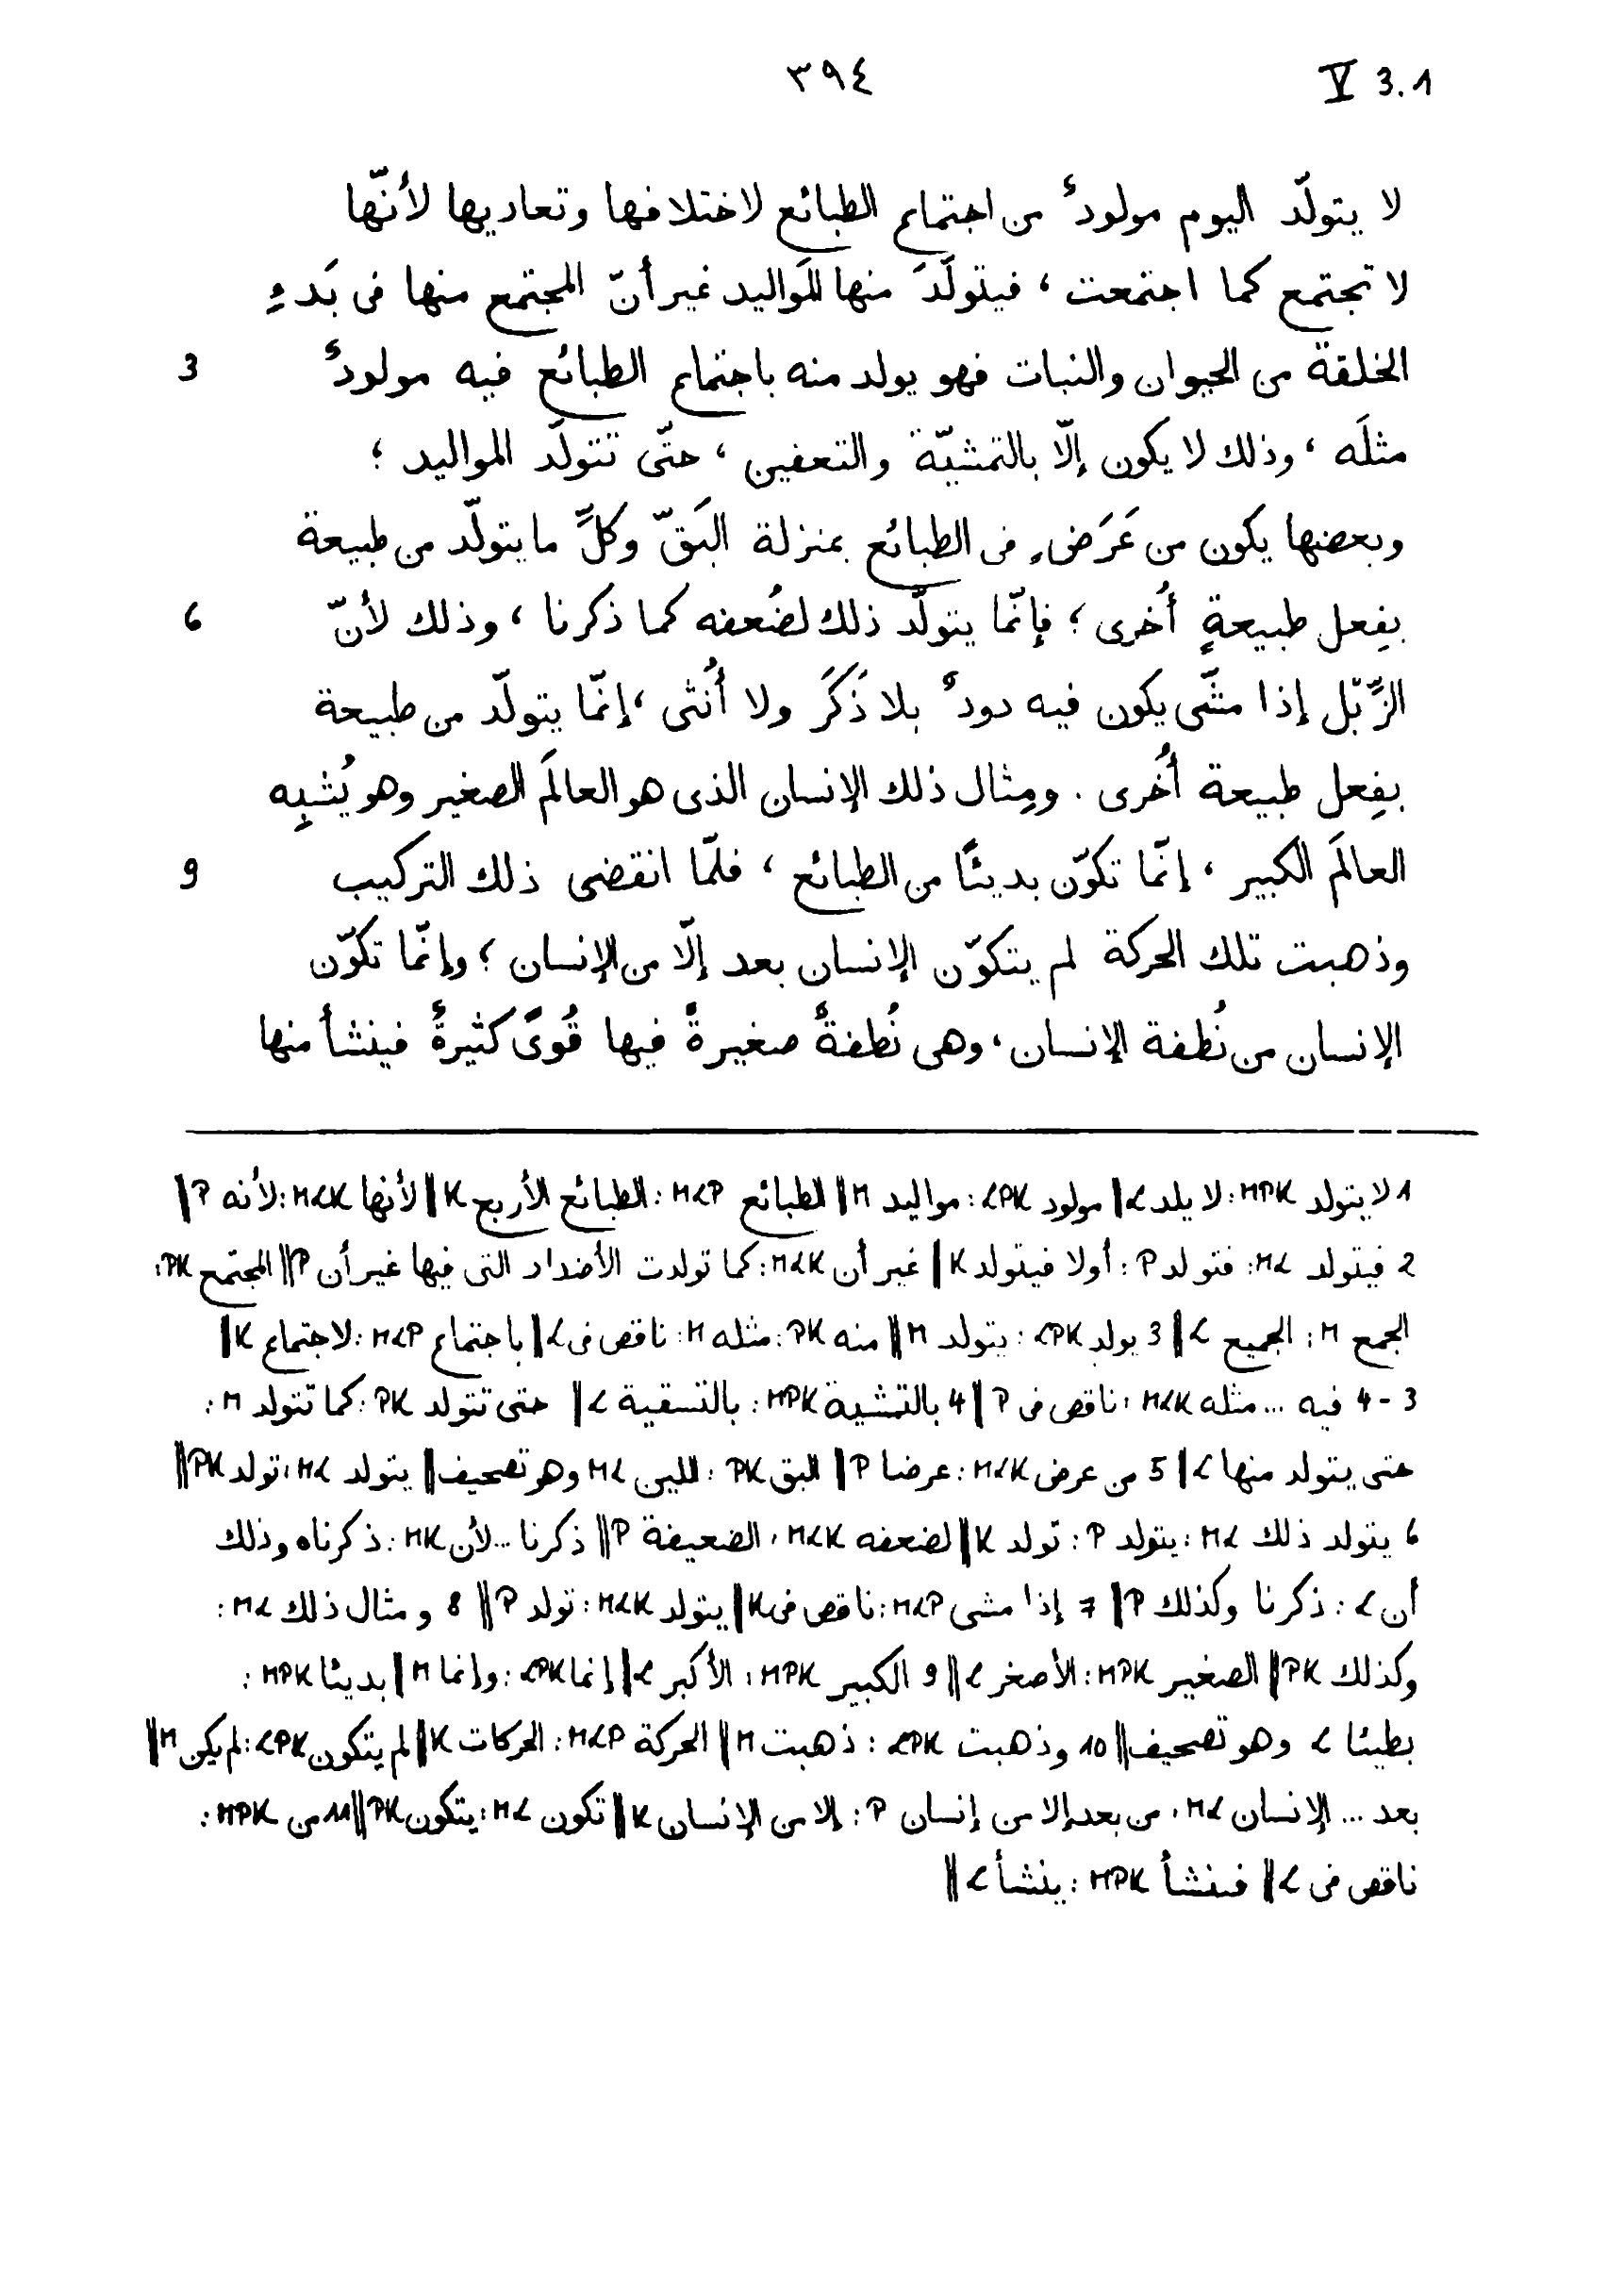 ٣٩٤ V 3.1
لا يتولّد اليوم مولودٌ من اجتماع الطبائع لاختلافها وتعاديها لأنّها
لا تجتمع كما اجتمعت ، فيتولّدَ منها المَواليد غير أنّ المجتمع منها فى بَدءِ
الخلقة من الحيوان والنبات فهو يولد منه باجتماع الطبائع فيه مولودٌ 3
مثلَه ، وذلك لا يكون إلّا بالتمشيّة والتعفين ، حتّى تتولّد المواليد ؛
وبعضها يكون من عَرَضٍ فى الطبائع بمنزلة البَقّ وكلِّ ما يتولّد من طبيعة
بفِعل طبيعةٍ أُخرى ؛ فإنّما يتولّد ذلك لضُعفه كما ذكرنا ، وذلك لأنّ 6
الزِّبْل إذا مشّى يكون فيه دودٌ بلا ذَكَرَ ولا أُنثى ، إنّما يتولّد من طبيعة
بفِعل طبيعة أُخرى . ومِثال ذلك الإنسان الذى هو العالَم الصغير وهو يُشبِه
العالَم الكبير ، إنّما تكوّن بديئًا من الطبائع ، فلمّا انقضى ذلك التركيب 9
وذهبت تلك الحركة لم يتكوّن الإنسان بعد إلّا من الإنسان ؛ وإنّما تكوّن
الإنسان من نُطفة الإنسان ، وهى نُطفةٌ صغيرةٌ فيها قُوىً كثيرةٌ فينشأ منها
1 لا يتولد MPK : لا يلد L || مولود LPK : مواليد M || الطبائع MLP : الطبائع الأربع K || لأنها MLK : لأنه P ||
2 فيتولد ML : فتولد P : أولا فيتولد K || غير أن MLK : كما تولدت الأضداد التى فيها غير أن P || المجتمع PK :
الجمع M : الجميع L || 3 يولد LPK : يتولد M || منه PK : مثله M : ناقص فى L || باجتماع MLP : لاجتماع K ||
3 - 4 فيه ... مثله MLK : ناقص فى P || 4 بالتمشية MPK : بالتسقية L || حتى تتولد PK : كما تتولد M :
حتى يتولد منها L || 5 من عرض MLK : عرضا P || البق PK : اللين ML وهو تصحيف || يتولد ML : تولد PK ||
6 يتولد ذلك ML : يتولد P : تولد K || لضعفه MLK : الضعيفة P || ذكرنا ... لأن MK : ذكرناه وذلك
أن L : ذكرنا وكذلك P || 7 إذا مشى MLP : ناقص فى K || يتولد MLK : تولد P || 8 ومثال ذلك ML :
وكذلك PK || الصغير MPK : الأصغر L || 9 الكبير MPK : الأكبر L || إنما LPK : وإنما M || بديئا MPK :
بطيئا L وهو تصحيف || 10 وذهبت LPK : ذهبت M || الحركة MLP : الحركات K || لم يتكون LPK : لم يكن M ||
بعد ... الإنسان ML : من بعد إلا من إنسان P : إلا من الإنسان K || تكون ML : يتكون PK || 11 من MPK :
ناقص فى L || فينشأ MPK : ينشأ L ||